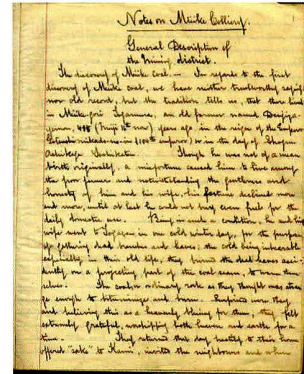 Notes on Miike Colliery.
General Description of
the Mining district.
The discovery of Miike coal — In regard to the first
discovery of Miike coal, we have neither trustworthy
nor old record, but the tradition tells us, that there lived
in Miike-gori Inamura, an old farmer named
years ago, in the reign of the
emperor) or in the day of Shogun
Ashikaga Though he was not of a mean
birth originally, a misfortune caused him to live among
the poor farmers and notwithstanding the gentleness and
honesty of him and his wife, his fortune declined more
and more, until at last he could not buy even fuel for the
daily domestic use. Being in such a condition, he and his
wife went to in one cold winter day, for the purpose
of gathering dead branches and leaves, the cold being intolerable
especially, in their old life, they fired the dead leaves acci-
dently on a projecting part of the coal seam, to warm them
selves. The coal, or ordinary rock as they thought was strange
enough to and burn. Surprised were they
and believing this as a heavenly thing for them, they felt
extremely grateful, worshipping both heaven and earth for a
time. They returned that day hastily to their home
offered "sake" to Kami, invited the neighbours and